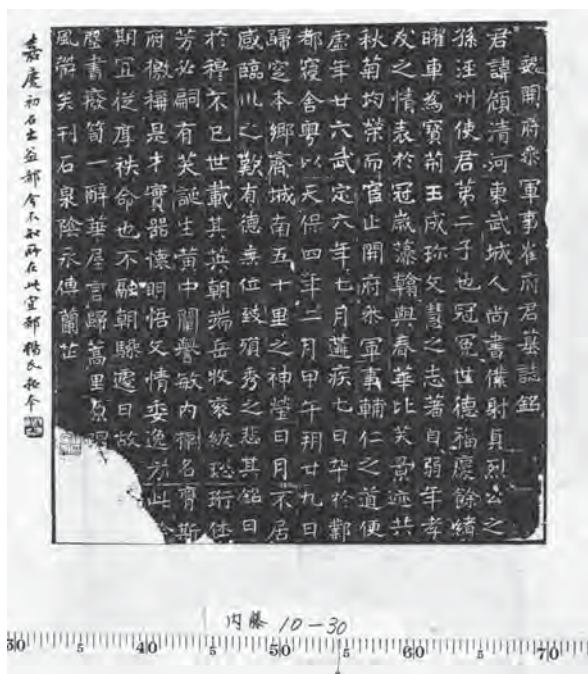 魏開府叅軍事崔府君墓誌銘
君諱頠清河東武城人尚書僕射貞烈公之
孫涇州使君第二子也冠冕世德福慶餘緒
曜車為寶荊玉成珍文慧之志著自弱年孝
友之情表於冠歲藻翰與春華比美景迹共
秋菊均榮而官止開府叅軍事輔仁之道便
虛年廿六武定六年七月遘疾七日卒於鄴
都寢舍粵以天保四年二月甲午朔廿九日
歸窆本鄉齊城南五十里之神塋日月不居
感臨川之歎有德無位致殞秀之悲其銘曰
於穆不已世載其英朝端岳牧袞紱珩往
芳必嗣有美誕生黃中闡譽敏內摽名齊斯
府僚稱是才實器懷明悟文情委逸方此
期宜從厚秩命也不融朝驂遽日故
壁書廢笥一醉華屋言歸蒿里原隰
風刊石泉陰永傳蘭芷
嘉慶初石出益都今不知所在此宜都楊氏秘本
内藤 10-30
30 5 40 5 50 5 60 5 70